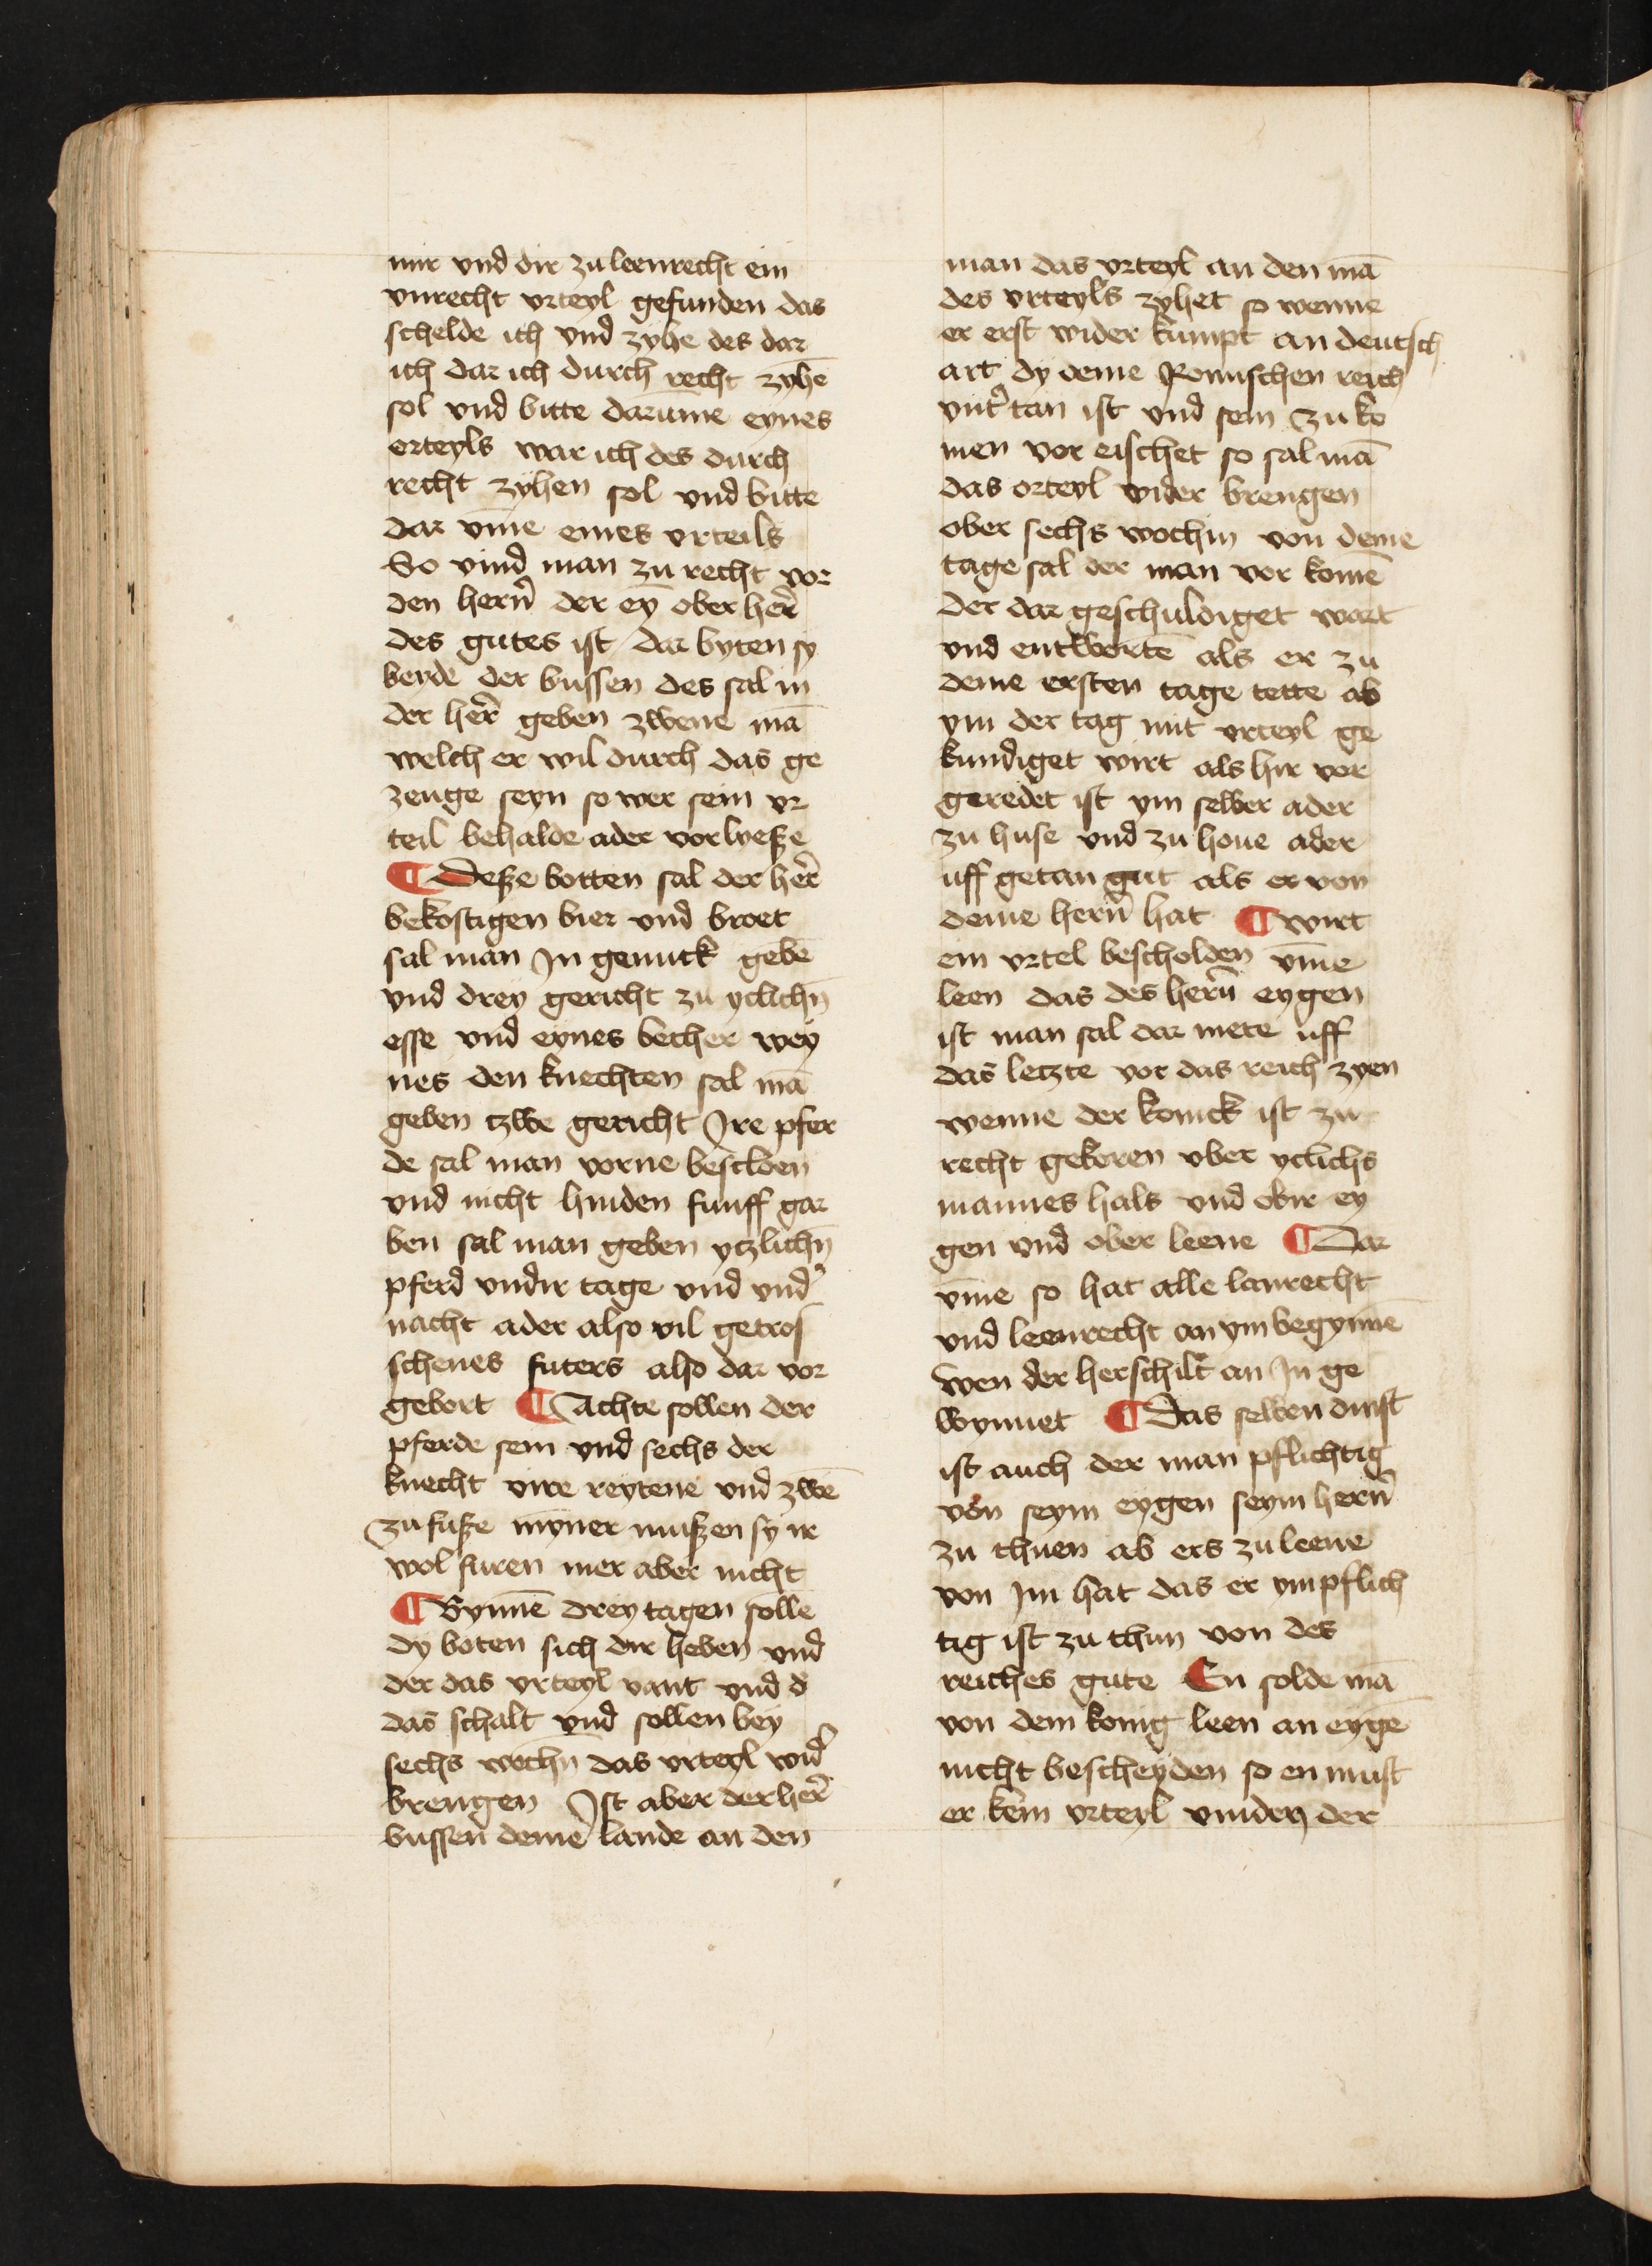 mir vnd dir zu leenrecht ein
vnrecht vrteyl gefunden das
schelde ich vnd zyhe des dar
ich dar ich durch recht zyhē
sol vnd bitte darūme eynes
orteyls war ich des durch
recht zyhen sol vnd bitte
dar vm̄e eines vrteils
So vind man zu recht vor
den hern̄ der ey ober her̄
des gutes ist dar byten sy
beyde der bussen des sal in
der her̄ geben zwene mā
welch er wil durch das ge
zenge seyn so wer sein vr
teil behalde ader vorlyesze
¶ Desze botten sal der her̄
bekostigen bier vnd broet
sal man In genuck gebē
vnd drey gericht zu yclichn̄
esse vnd eynes becher wey
nes den knechten sal mā
geben czwe gericht Ire pfer
de sal man vorne bescloen
vnd nicht hinden funff gar
ben sal man geben yczlichn̄
pferd vndir tage vnd vnd'
nacht ader also vil getros
schenes futers also dar vor
gebort ¶ Achte sollen der
pferde sein vnd sechs der
knecht vire reytene vnd zwē
zu fusze myner muszen sy ir
wol furen mer aber nicht
¶ Bynnē drey tagen solle
dy boten sich dir heben vnd
der das vrteyl vant vnd d'
das schalt vnd sollen bey
sechs wochn̄ das vrteyl wid'
brengen Ist aber der her̄
bussen deme lande an den
man das vrteyl an den mā
des vrteyls zyhet so wenne
er erst wider kumpt an deutsch
art dy deme Romischen reich
vnt'tan ist vnd sein zu ko
men vor eischet so sal mā
das orteyl wider brengen
ober sechs wochin von deme
tage sal der man vor komē
der dar geschuldiget wart
vnd entwortē als er zu
deme ersten tage tette ab
ym der tag mit vrteyl ge
kundiget wirt als hir vor
geredet ist ym selber ader
zu huse vnd zu houe ader
uff getan gut als er von
deme hern̄ hat ¶ wirt
ein vrtel bescholden vm̄e
leen das des hern̄ eygen
ist man sal dar mete uff
das letzte vor das reich zyen
wenne der konick ist zu
recht gekoren vber yclichs
mannes hals vnd obir ey
gen vnd ober leene ¶ Dar
vm̄e so hat alle lanrecht
vnd leenrecht an ym begynnē
wen der herschilt an In ge
wynnet ¶ Das selben dinst
ist auch der man pflichtig
von seym eygen seym hern̄
zu thuen ab ers zu leene
von Im hat das er ym pflich
tig ist zu thun von des
reiches gute En solde mā
von dem konig leen an eygē
nicht bescheyden so en must
er kein vrteyl vinden der